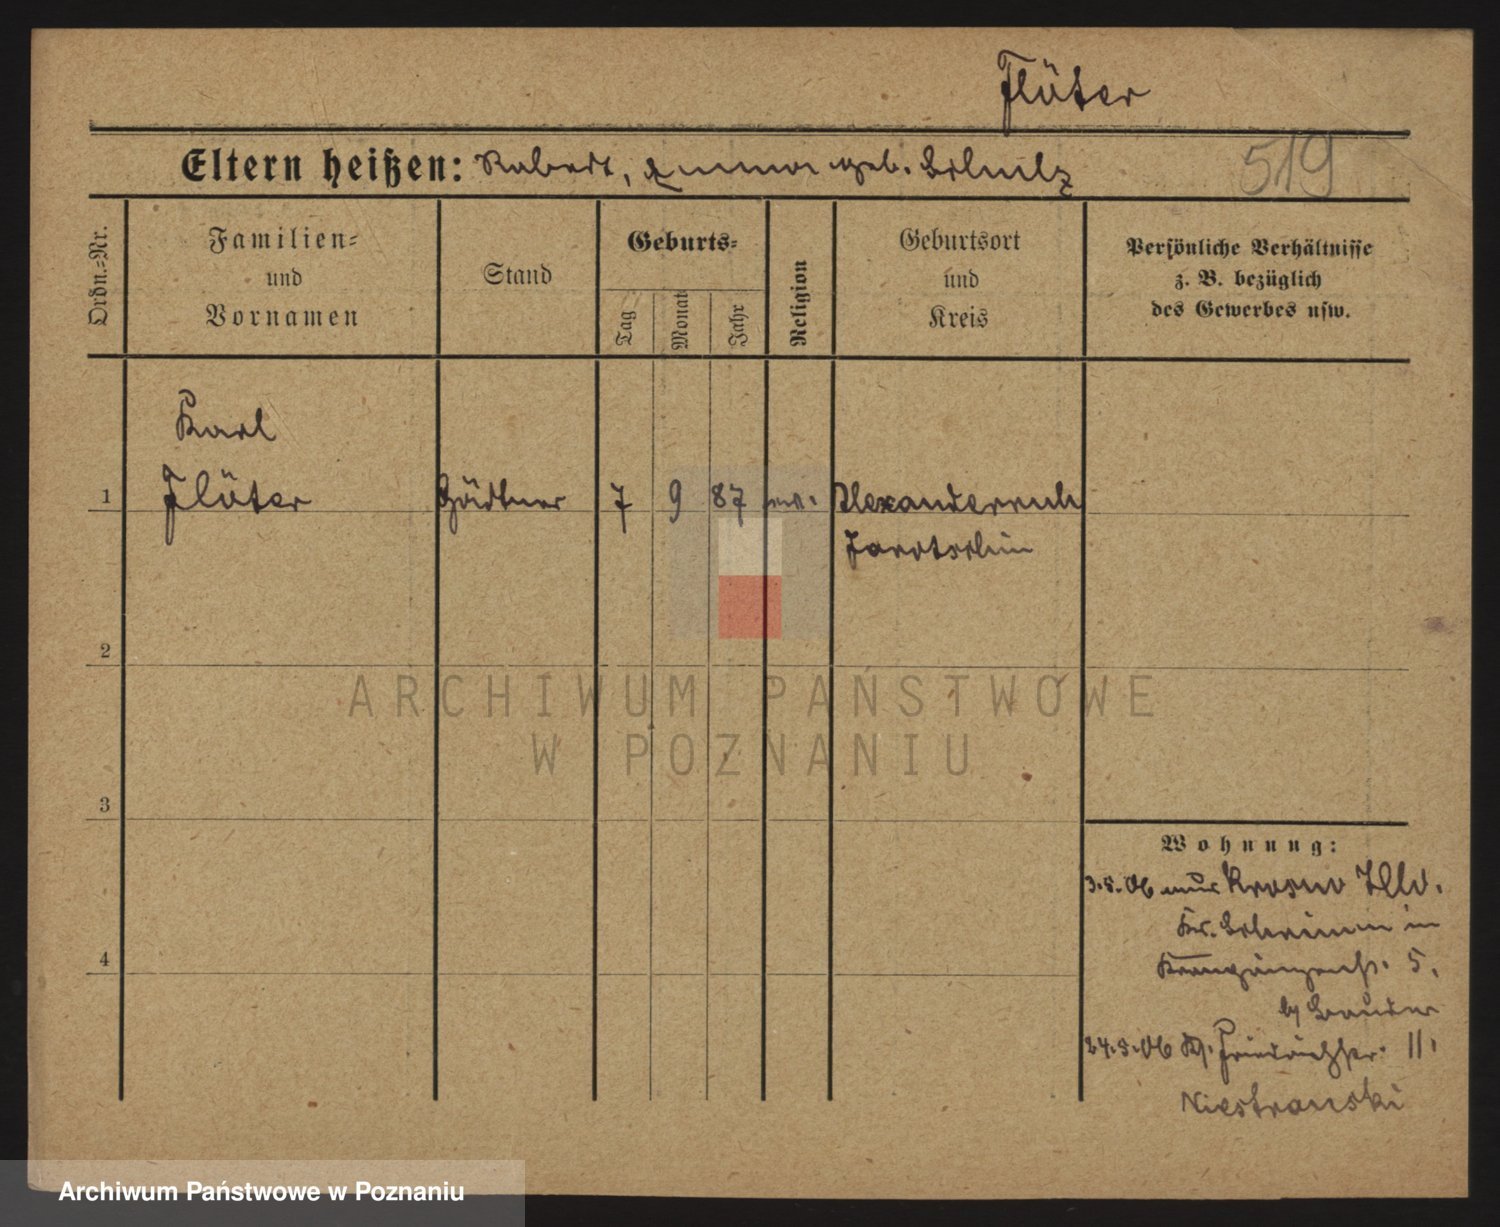 Flöter
Eltern heißen: Robert, Emma geb. Scholz
519
Ordn.-Nr.
Familien-
und
Vornamen
Stand
Geburts-
Tag
Monat
Jahr
Religion
Geburtsort
und
Kreis
Persönliche Verhältnisse
z. B. bezüglich
des Gewerbes usw.
Karl
1 Flöter Gärtner 7 9 87
Jarotschin
2
ARCHIWUM PAŃSTWOWE
W POZNANIU
3
Wohnung:
3.5.06 Krosno
Kr. Schrimm in
4
5.
24.5.06 11.
Niestranski
Archiwum Państwowe w Poznaniu